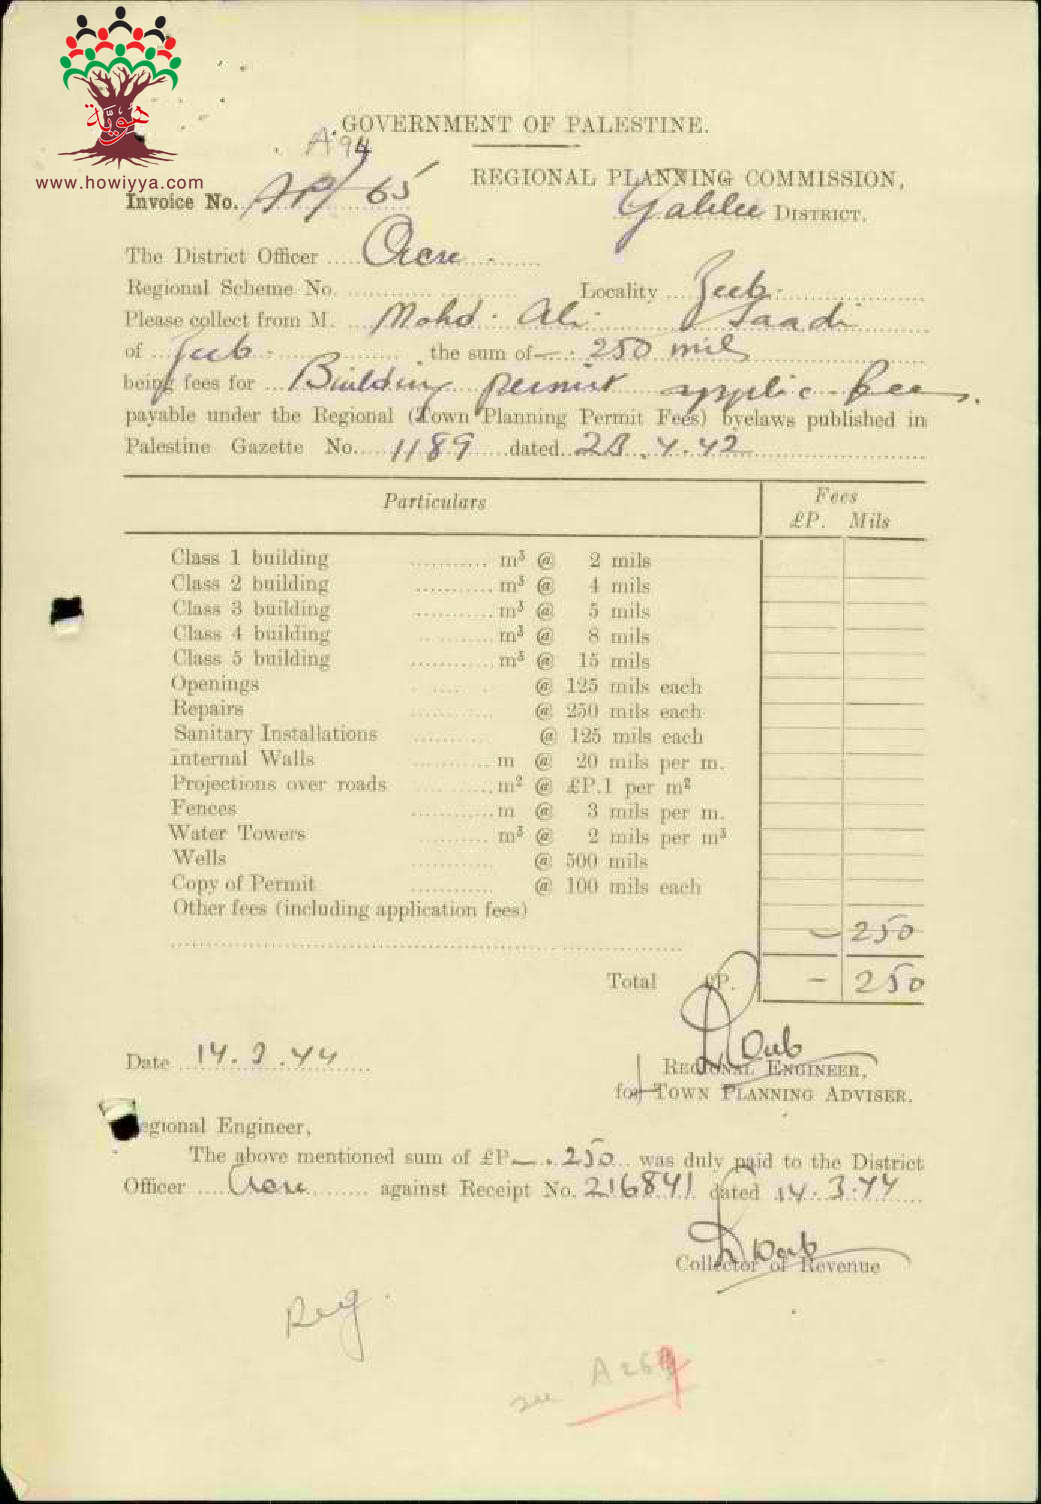 هوية
www.howiyya.com
GOVERNMENT OF PALESTINE.
A 94
REGIONAL PLANNING COMMISSION,
Invoice No. AP/65
Galilee DISTRICT.
The District Officer ..... Acre ..........
Regional Scheme No. .................... Locality .... Zeeb ....................
Please collect from M. ... Mohd. Ali Saadi ..........
of ... Zeeb .................. the sum of —. 250 mils ....................
being fees for ... Building permit applic. fees.
payable under the Regional (Town Planning Permit Fees) byelaws published in
Palestine Gazette No..... 1189 .....dated.. 23.4.42 ....................
Particulars Fees
£P. Mils
Class 1 building ........... m³ @ 2 mils
Class 2 building ........... m³ @ 4 mils
Class 3 building ........... m³ @ 5 mils
Class 4 building ........... m³ @ 8 mils
Class 5 building ........... m³ @ 15 mils
Openings ........... @ 125 mils each
Repairs ........... @ 250 mils each
Sanitary Installations ........... @ 125 mils each
Internal Walls ........... m @ 20 mils per m.
Projections over roads ........... m² @ £P.1 per m²
Fences ........... m @ 3 mils per m.
Water Towers ........... m³ @ 2 mils per m³
Wells ........... @ 500 mils
Copy of Permit ........... @ 100 mils each
Other fees (including application fees)
.................................................. – 250
Total £P. – 250
Date ... 14.3.44 ........
REGIONAL ENGINEER,
for TOWN PLANNING ADVISER.
egional Engineer,
The above mentioned sum of £P —. 250 ... was duly paid to the District
Officer .... Acre ......... against Receipt No. 216841 dated 14.3.44 ....
Collector of Revenue
Reg.
see